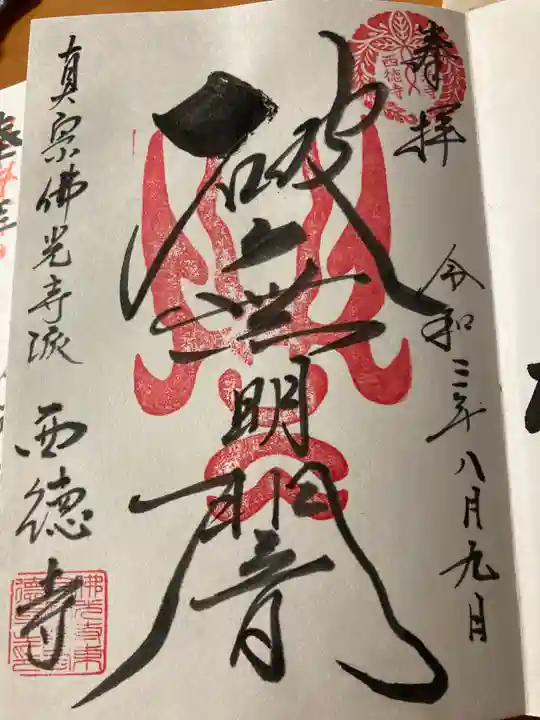 奉拝
西徳寺
令和三年八月九日
破無明闇
真宗佛光寺派
西徳寺